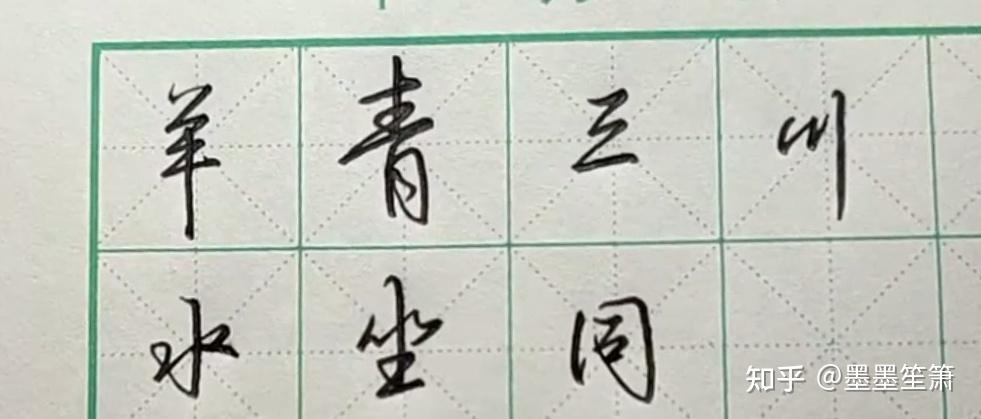 羊青三川
水坐同
知乎 @墨墨笙箫